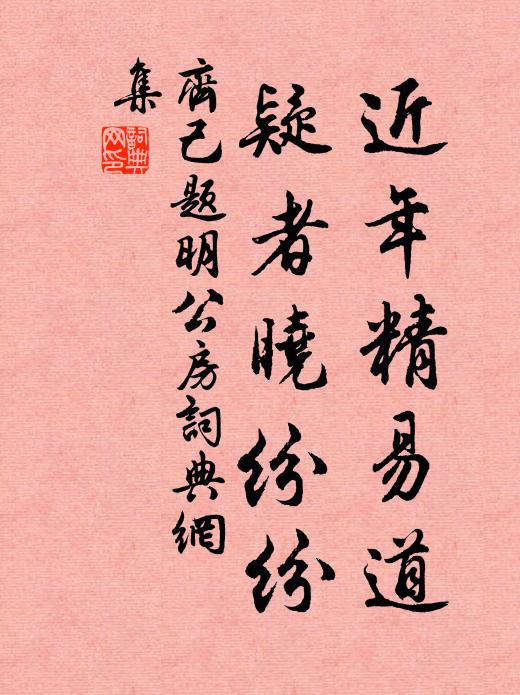 近年精易道
疑者曉紛紛
齊己題明公房詞典網
集
詞典
网印